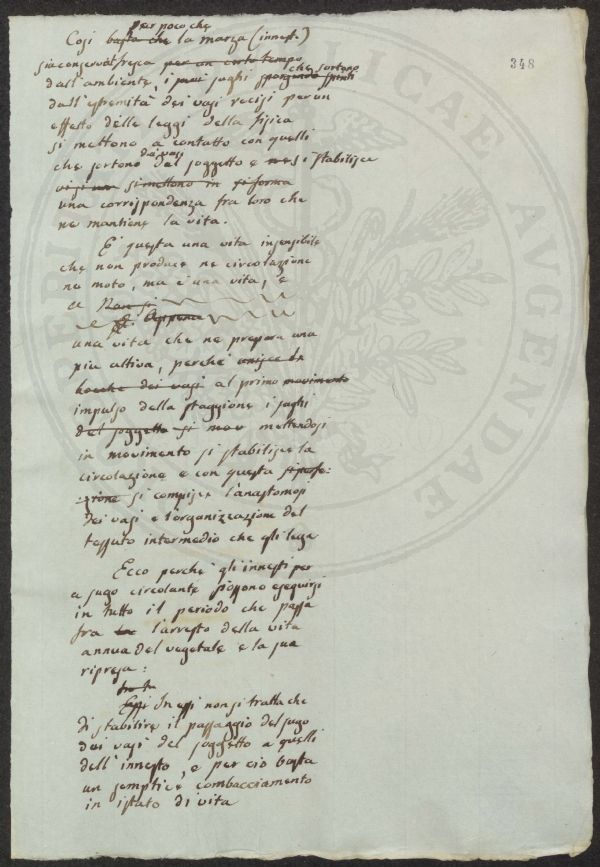 348
Per poco che
Così basta che la marza (innesto)
sia conservat fresca per un certo tempo
dall'ambiente, i sughi che sortono
dall'estremità dei vasi recisi per un
effetto delle leggi della fisica
si mettono a contatto con quelli
che sortono dai vasi del soggetto e si stabilisce
si mettono in si forma
una corrispondenza fra loro che
ne mantiene la vita.
È questa una vita insensibile
che non produce ne circolazione
ne moto, ma è una vita, e
Non si
Appena
una vita che ne prepara una
piu attiva, perchè unisce le
bocche dei vasi al primo movimento
impulso della staggione i sughi
del soggetto si mov mettendosi
in movimento si stabilisce la
circolazione e con questa si perfe:
:zione si compisce l'anastomosi
dei vasi e l'organizzazione del
tessuto intermedio che gli lega
Ecco perchè gl'innesti per
a sugo circolante possono eseguirsi
in tutto il periodo che passa
fra l'arresto della vita
annua del vegetale e la sua
ripresa:
Essi In essi non si tratta che
di stabilire il passaggio del sugo
dai vasi del soggetto a quelli
dell'innesto, e per ciò basta
un semplice combacciamento
in istato di vita